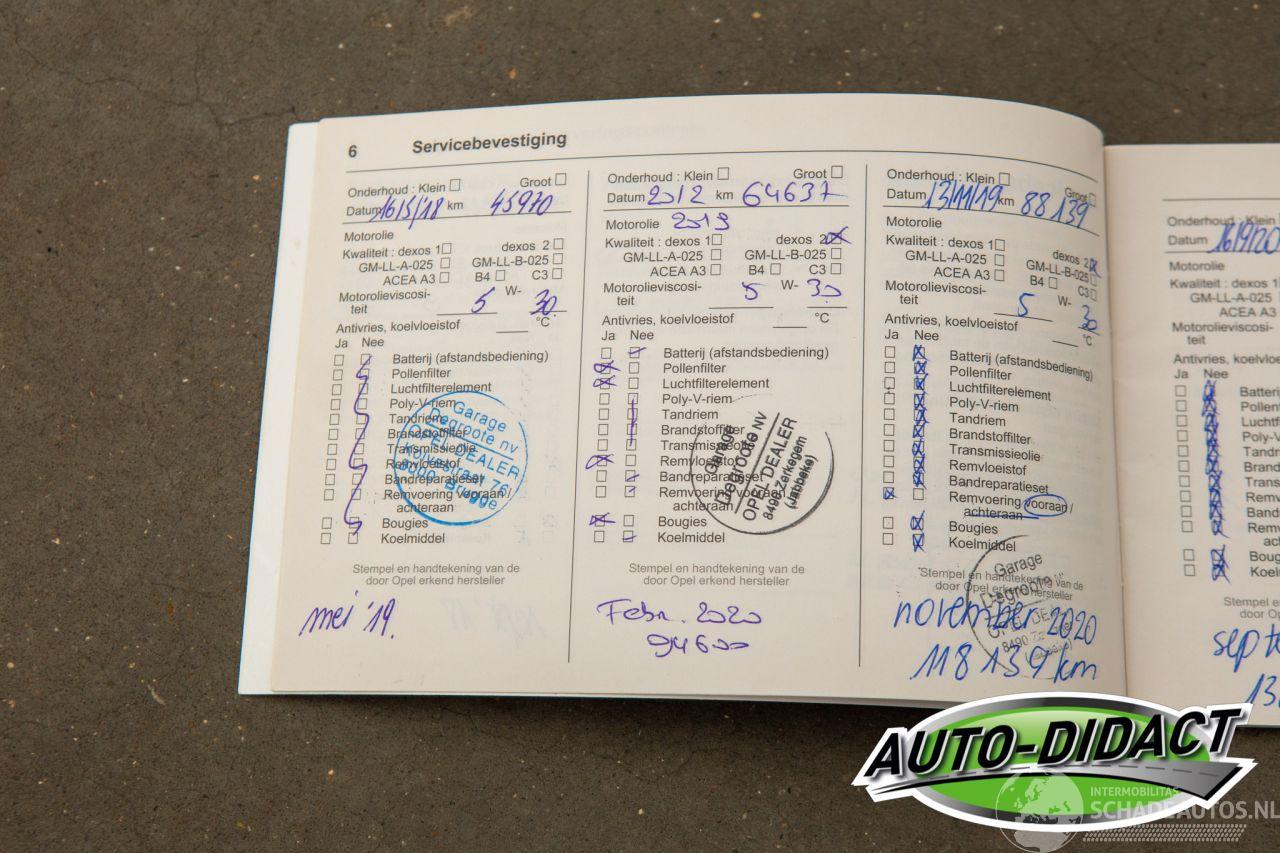 6 Servicebevestiging
Onderhoud : Klein Groot
Datum 16/5/'18 km 45970
Motorolie
Kwaliteit : dexos 1 dexos 2
GM-LL-A-025 GM-LL-B-025
ACEA A3 B4 C3
Motorolieviscosi-
teit 5 W- 30
Antivries, koelvloeistof °C
Ja Nee
Batterij (afstandsbediening)
Pollenfilter
Luchtfilterelement
Poly-V-riem
Tandriem
Brandstoffilter
Transmissieolie
Remvloeistof
Bandreparatieset
Remvoering vooraan /
achteraan
Bougies
Koelmiddel
Garage
Degroote nv
OPEL DEALER
Kolvestraat 76
8000 Brugge
Stempel en handtekening van de
door Opel erkend hersteller
mei '19.
Onderhoud : Klein Groot
Datum 20/2 km 64637
Motorolie 2019
Kwaliteit : dexos 1 dexos 2
GM-LL-A-025 GM-LL-B-025
ACEA A3 B4 C3
Motorolieviscosi-
teit 5 W- 30
Antivries, koelvloeistof °C
Ja Nee
Batterij (afstandsbediening)
Pollenfilter
Luchtfilterelement
Poly-V-riem
Tandriem
Brandstoffilter
Transmissieolie
Remvloeistof
Bandreparatieset
Remvoering vooraan /
achteraan
Bougies
Koelmiddel
Garage
Degroote nv
OPEL DEALER
8490 Zerkegem
(Jabbeke)
Stempel en handtekening van de
door Opel erkend hersteller
Febr. 2020
94600
Onderhoud : Klein Groot
Datum 13/11/19 km 88139
Motorolie
Kwaliteit : dexos 1 dexos 2
GM-LL-A-025 GM-LL-B-025
ACEA A3 B4 C3
Motorolieviscosi-
teit 5 W- 30
Antivries, koelvloeistof °C
Ja Nee
Batterij (afstandsbediening)
Pollenfilter
Luchtfilterelement
Poly-V-riem
Tandriem
Brandstoffilter
Transmissieolie
Remvloeistof
Bandreparatieset
Remvoering vooraan /
achteraan
Bougies
Koelmiddel
Stempel en handtekening van de
door Opel erkend hersteller
Garage
Degroote
OPEL DEALER
8490
november 2020
118139 km
Onderhoud : Klein
Datum 16/9/20
Motorolie
Kwaliteit : dexos 1
GM-LL-A-025
ACEA A3
Motorolieviscosi-
teit
Antivries, koelvloe
Ja Nee
Batteri
Pollen
Luchtf
Poly-V
Tandri
Brand
Trans
Remv
Band
Remv
ach
Boug
Koel
Stempel en
door Op
sept
13
AUTO-DIDACT
INTERMOBILITAS
SCHADEAUTOS.NL